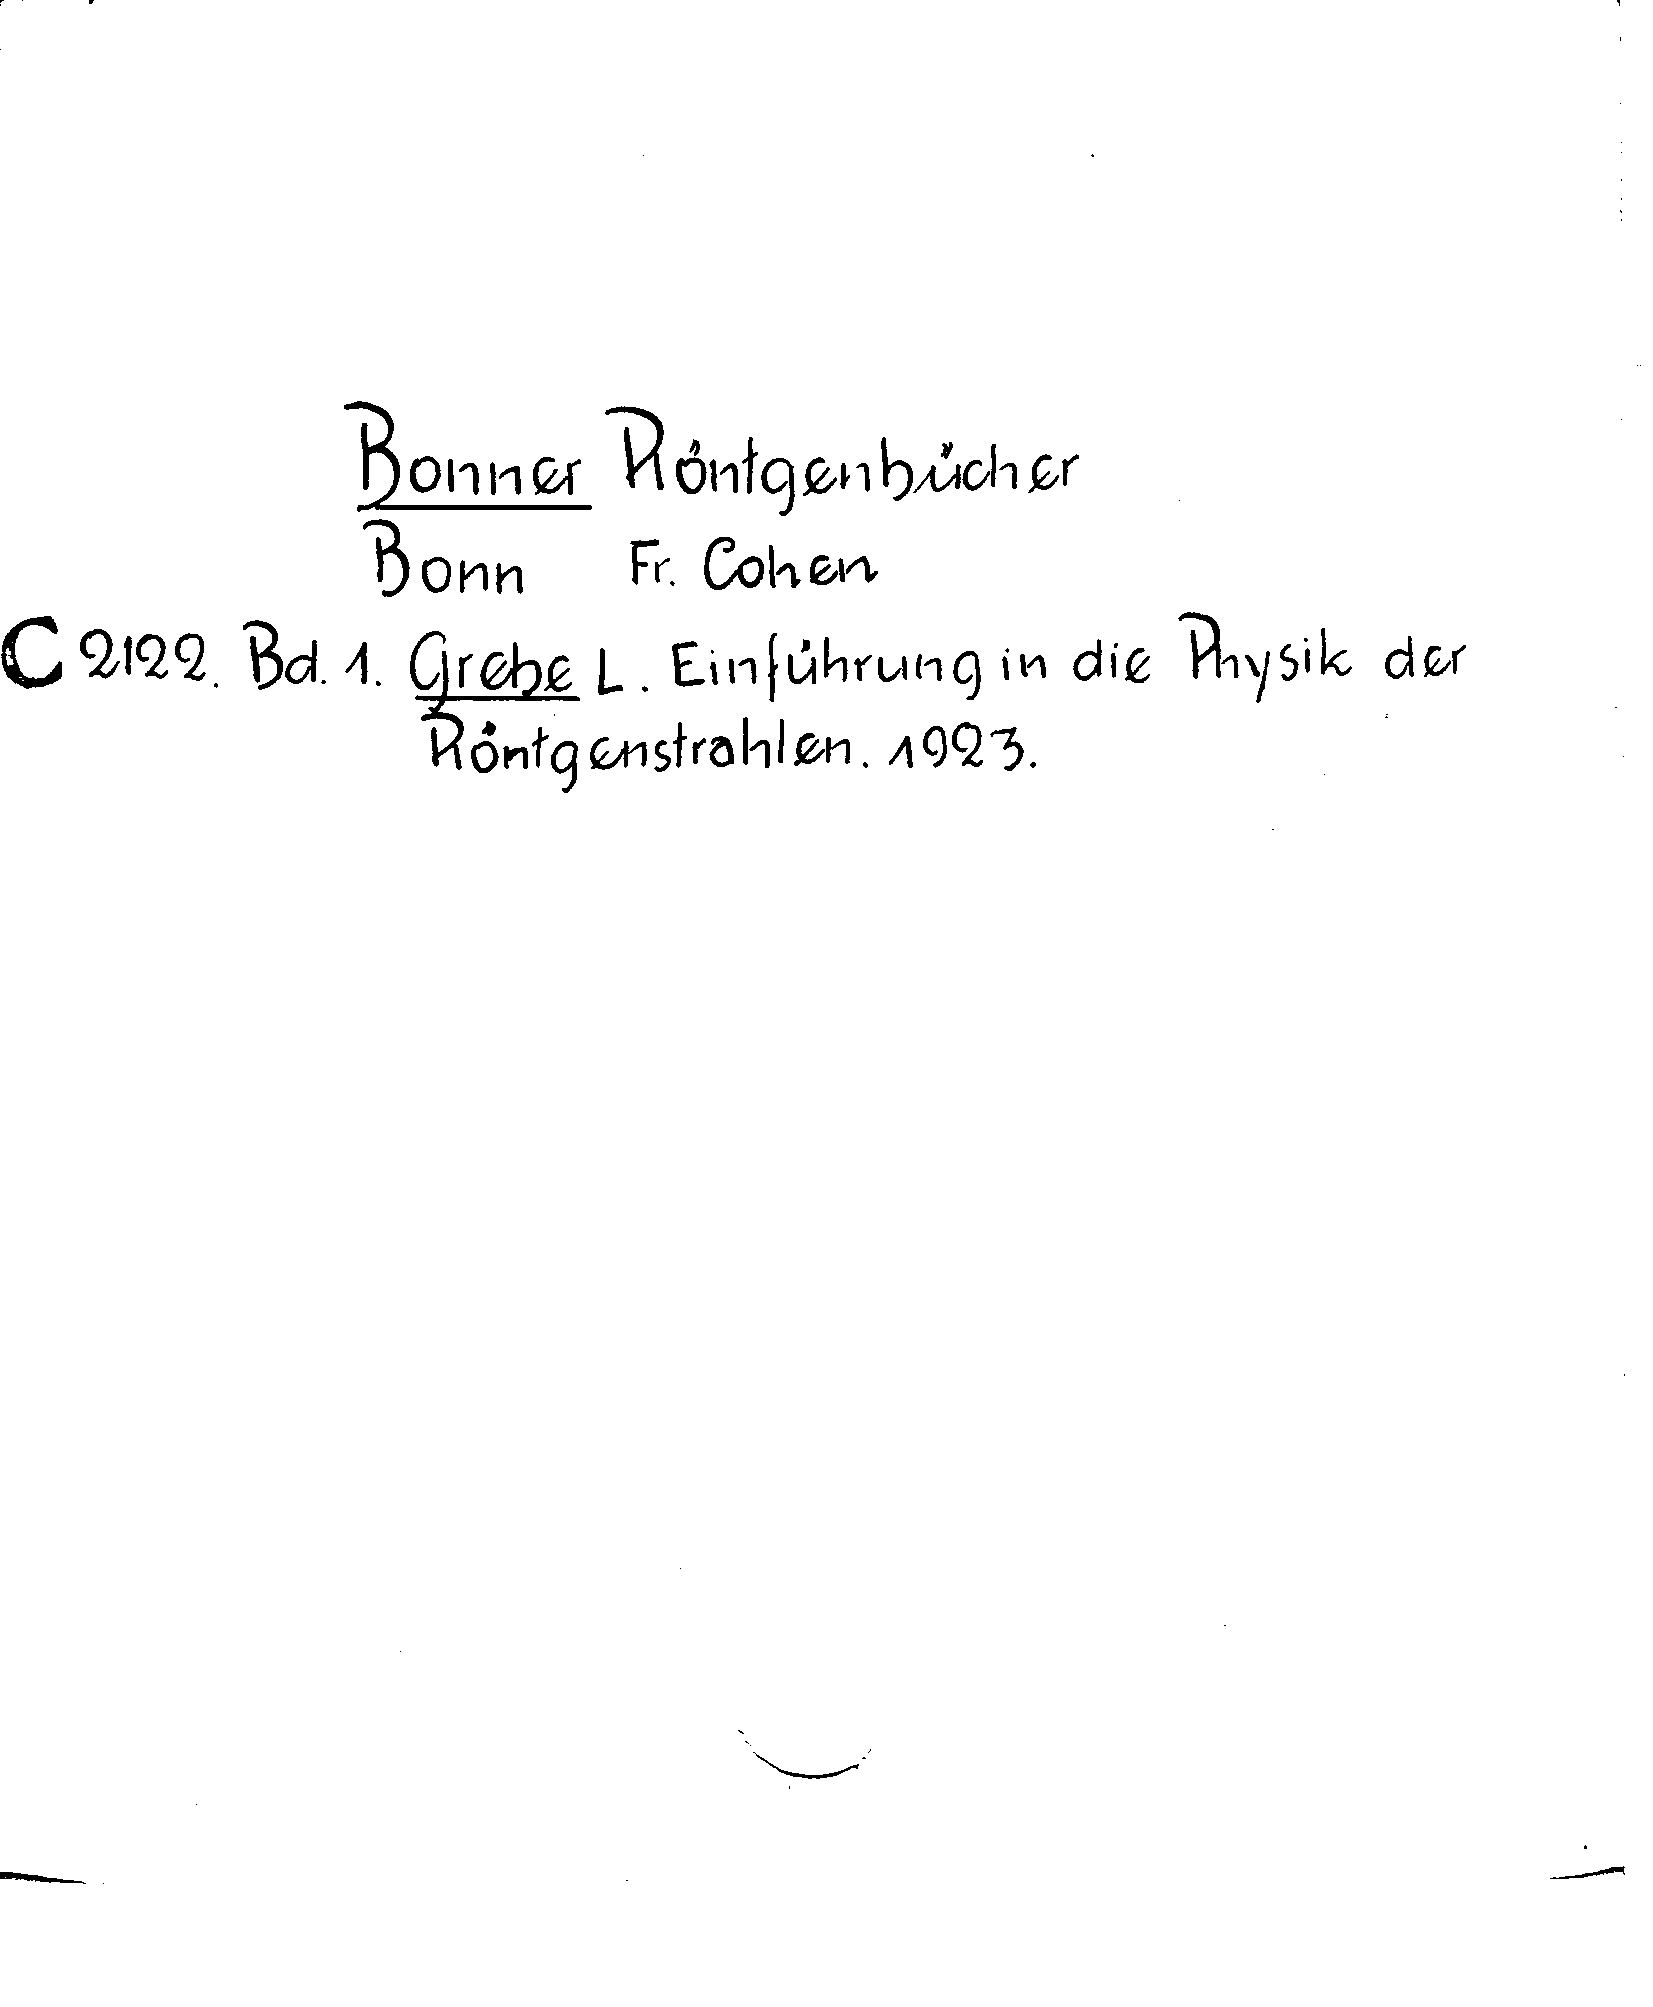 Bonner Röntgenbücher
Bonn Fr. Cohen
C 2122. Bd. 1. Grebe L. Einführung in die Physik der
Röntgenstrahlen. 1923.